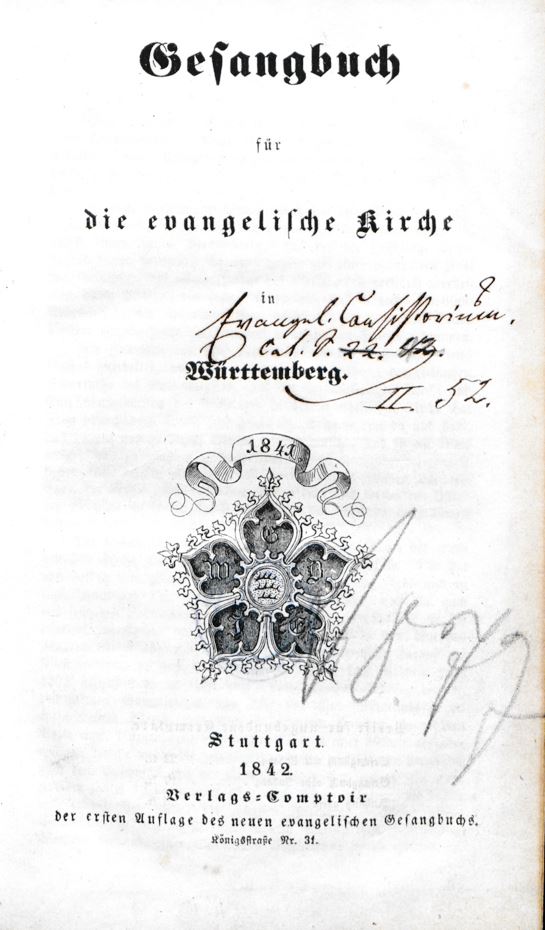 Gesangbuch
für
die evangelische Kirche
in
Evangel. Consistorium.
Cat. S. 22.
Württemberg.
II. 52.
1841.
G
W D
J E
Stuttgart
1842.
Verlags-Comptoir
der ersten Auflage des neuen evangelischen Gesangbuchs.
Königsstraße Nr. 31.